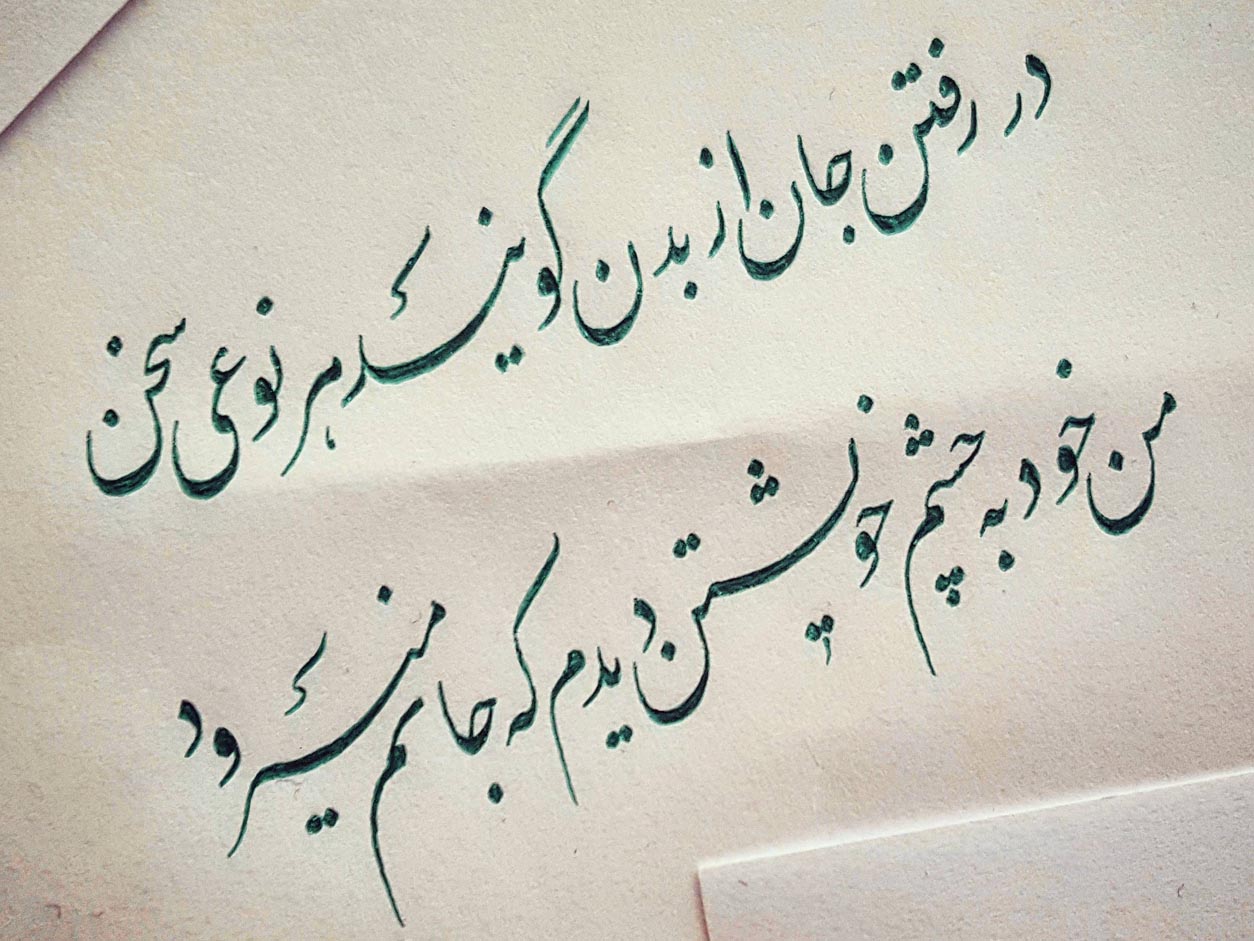 در رفتن جان از بدن گویند هر نوعی سخن
من خود به چشم خویشتن دیدم که جانم میرود